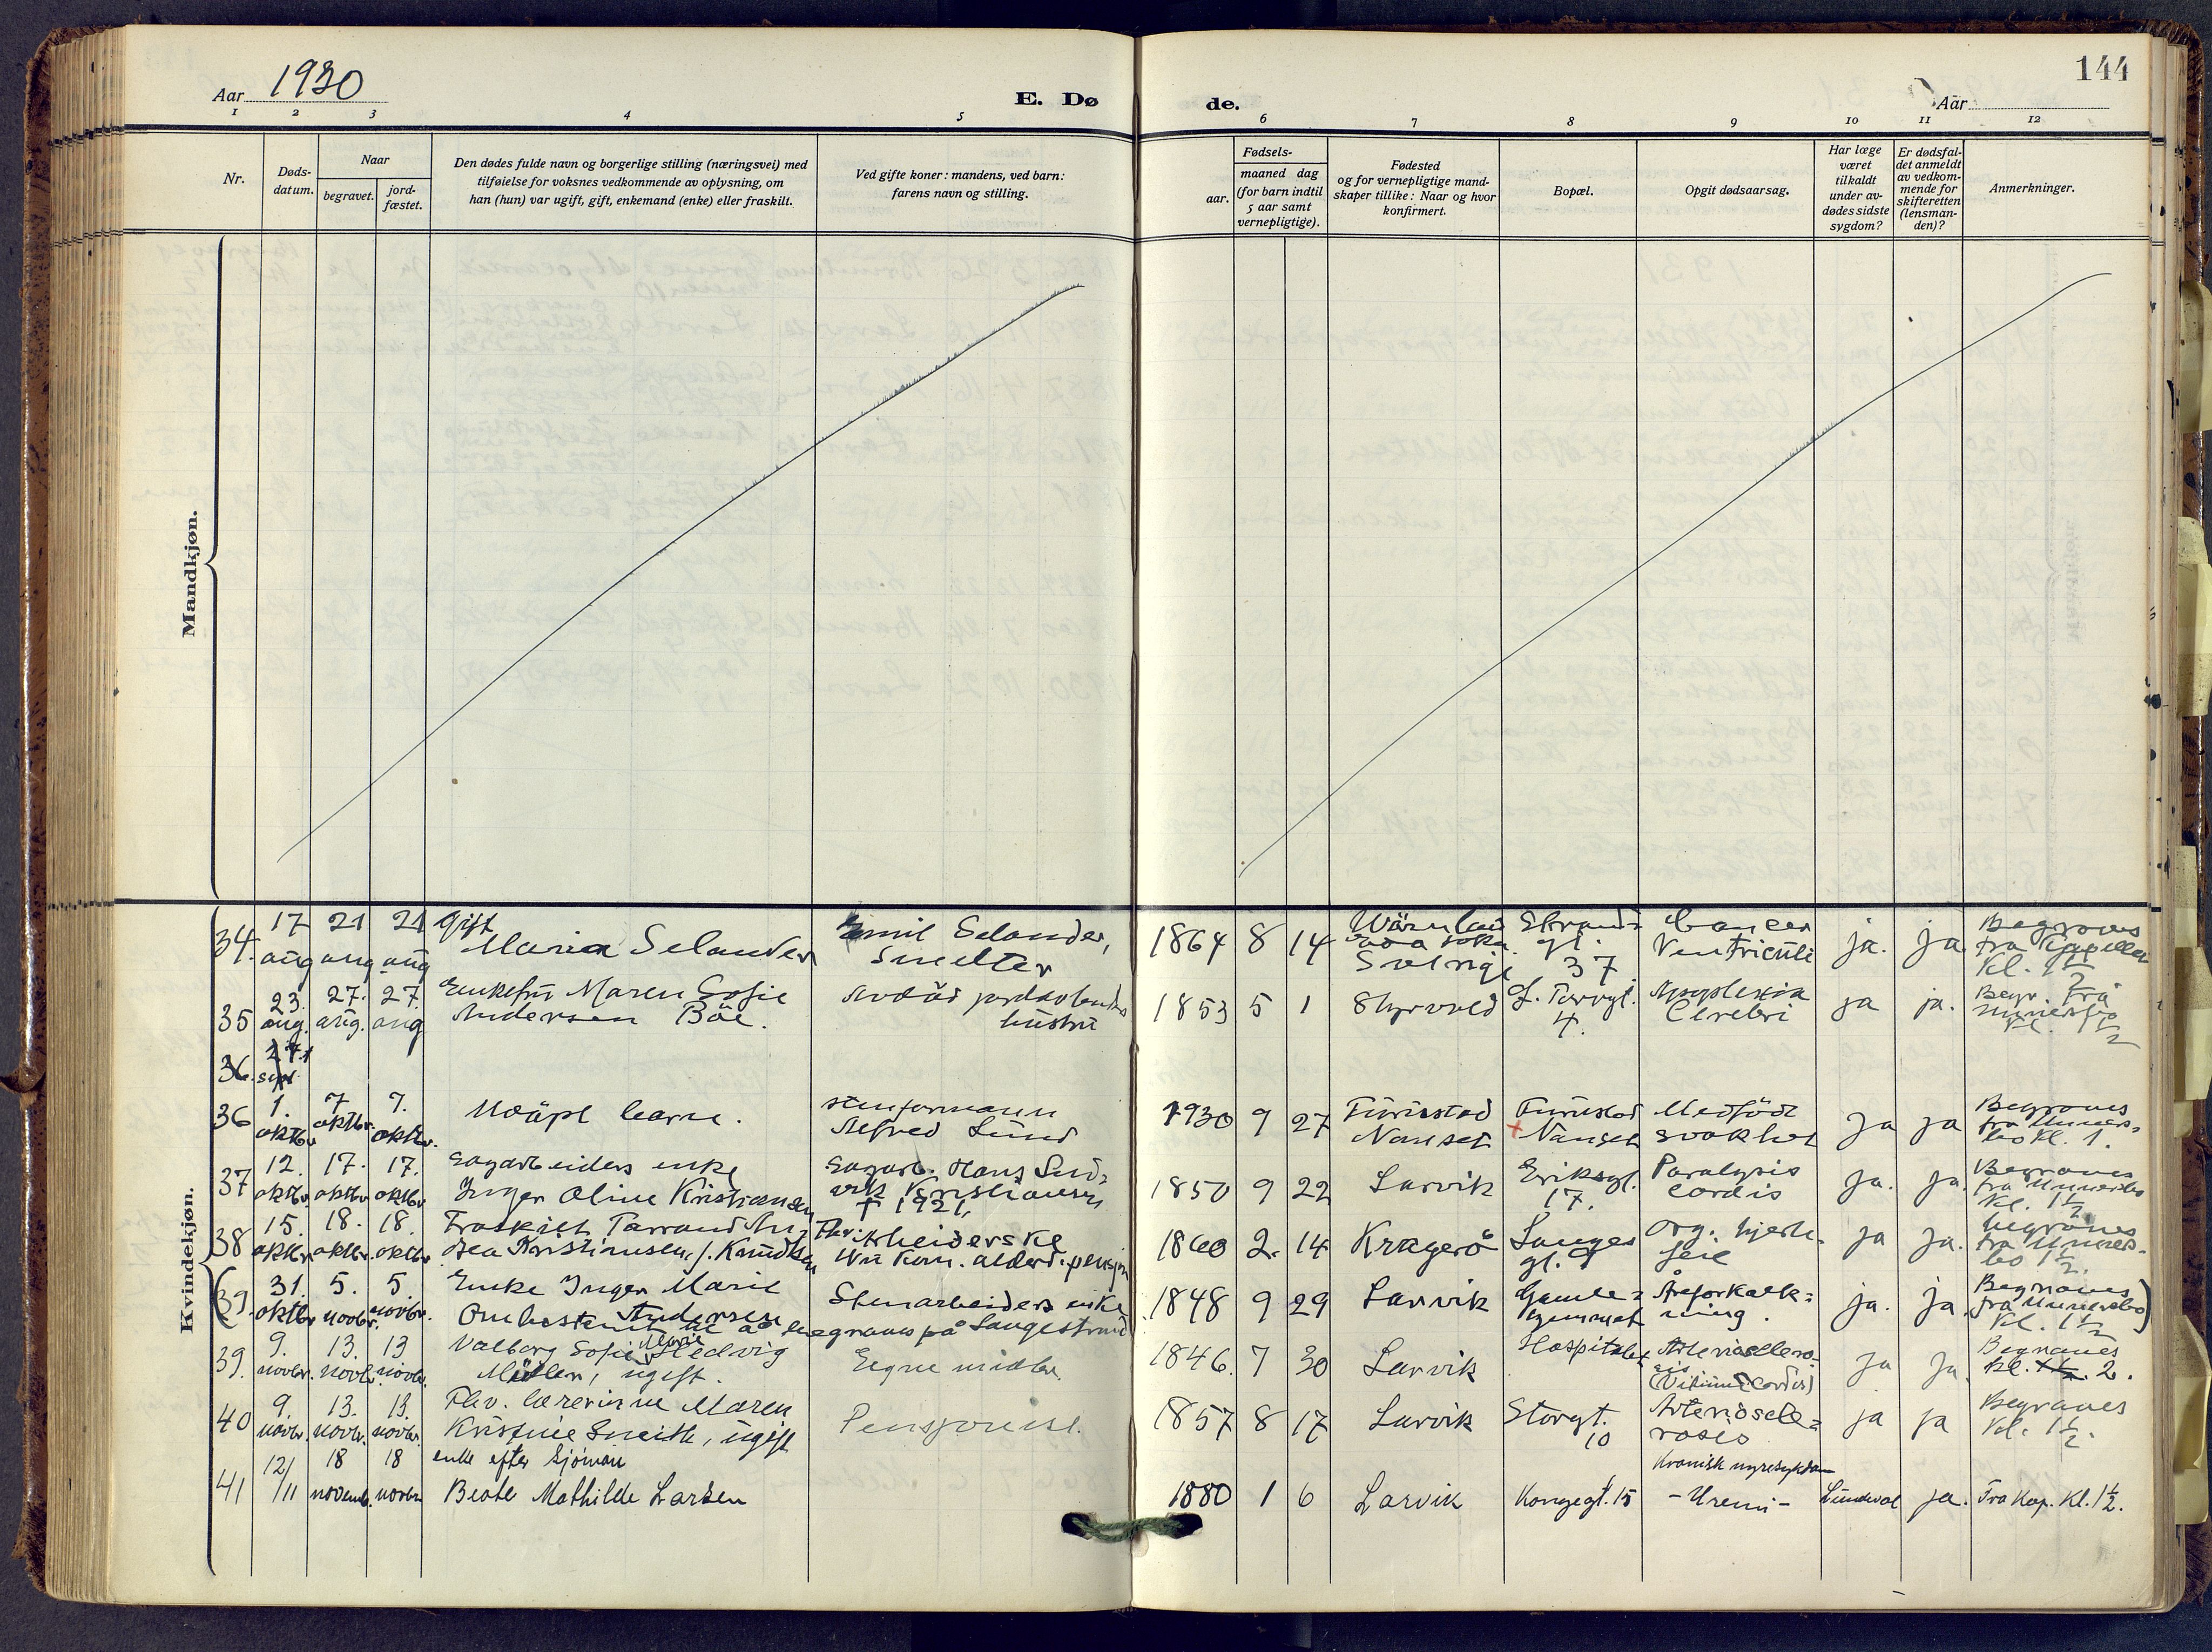 Aar 1930
E. Dø
de.
144
Aar
1 2 3 4 5 6 7 8 9 10 11 12
Nr.
Døds-
datum.
Naar
begravet.
jord-
fæstet.
Den dødes fulde navn og borgerlige stilling (næringsvei) med
tilføielse for voksnes vedkommende av oplysning, om
han (hun) var ugift, gift, enkemand (enke) eller fraskilt.
Ved gifte koner: mandens, ved barn:
farens navn og stilling.
Fødsels-
aar.
maaned dag
(for barn indtil
5 aar samt
vernepligtige).
Fødested
og for vernepligtige mand-
skaper tillike: Naar og hvor
konfirmert.
Bopæl.
Opgit dødsaarsag.
Har læge
været
tilkaldt
under av-
dødes sidste
sygdom?
Er dødsfal-
det anmeldt
av vedkom-
mende for
skifteretten
(lensman-
den)?
Anmerkninger.
Mandkjøn.
Kvindekjøn.
34. 17 aug 21 aug 21 aug
gift
Maria Selander
Emil Selander,
Smelter
1864 8 14
Sverige
Strand-
gt.
37
Cancer
Ventriculi
ja. ja
Begraves
fra Kapellet
Kl. 1½
35 23. aug. 27. aug. 27. aug
Enkefru Maren Sofie
Andersen Böe.
hustru
1853 5 1
4.
Apoplexia
Cerebri
ja ja.
Begr. fra
Minnersbo
Kl. 1½
36. 27. sept.
36 1. oktbr 7 oktbr. 7. oktbr.
Udöpt barn.
stenformann
Alfred Lund
1930 9 27
Furustad
Nanset
Furustad
Nanset
Medfödt
svakhet
Ja ja
Begraves
fra Minners-
bo Kl. 1.
37 12. oktbr 17. oktbr 17. oktbr
Sagarbeiders enke
Inger Oline Kristiansen
Sagarb. Hans Lud-
vik Kristiansen
† 1921.
1850 9 22
Larvik
Eriksgt.
17.
Paralysis
cordis
Ja. Ja.
Begraves
fra Minnersbo
Kl. 1½
38 15. oktbr. 18. oktbr. 18. oktbr
Fraskilt
Kristiansen, f. Knudtsen
Arbeiderske
Nu kom. alderd. pensjon
1860 2. 14
Kragerö
Langes
gt. 9
Org. hjerte-
feil
ja Ja.
begraves
fra Minners-
bo 1½.
(39. 31. oktbr 5. novbr. 5. novbr.
Enke Inger Marie
Andersen
Stenarbeiders enke
1848 9 29
Larvik
Gamle-
hjemmet
Åreforkalk-
ning.
ja. Ja
Begraves
fra Minnersbo)
Kl. 1½
39. 9. novbr. 13. novbr. 13 novbr.
Valborg Sofie Marie Hedvig
Möller, ugift.
Egne midler.
1846. 7 30
Larvik
Hospitalet
Arteriosclero-
sis
(Vitium cordis)
Ja Ja.
Begraves
Kl. 2.
40 9. novbr. 13. novbr. 13. novbr.
Fhv. lærerinne Maren
Kristine Smith, ugift
Pensjonist.
1857 8 17
Larvik
Storgt.
10
Arteriosele-
rosis
ja ja
Begraves
Kl. 1½.
41 12/11 18 novemb. 18 novbr
enke efter sjöman
Beate Mathilde Larsen
1880 1 6
Larvik
Kongegt. 15
Kronisk nyresykdom
- Uremi -
Lindvol ja. Fra Kap. Kl. 1½.